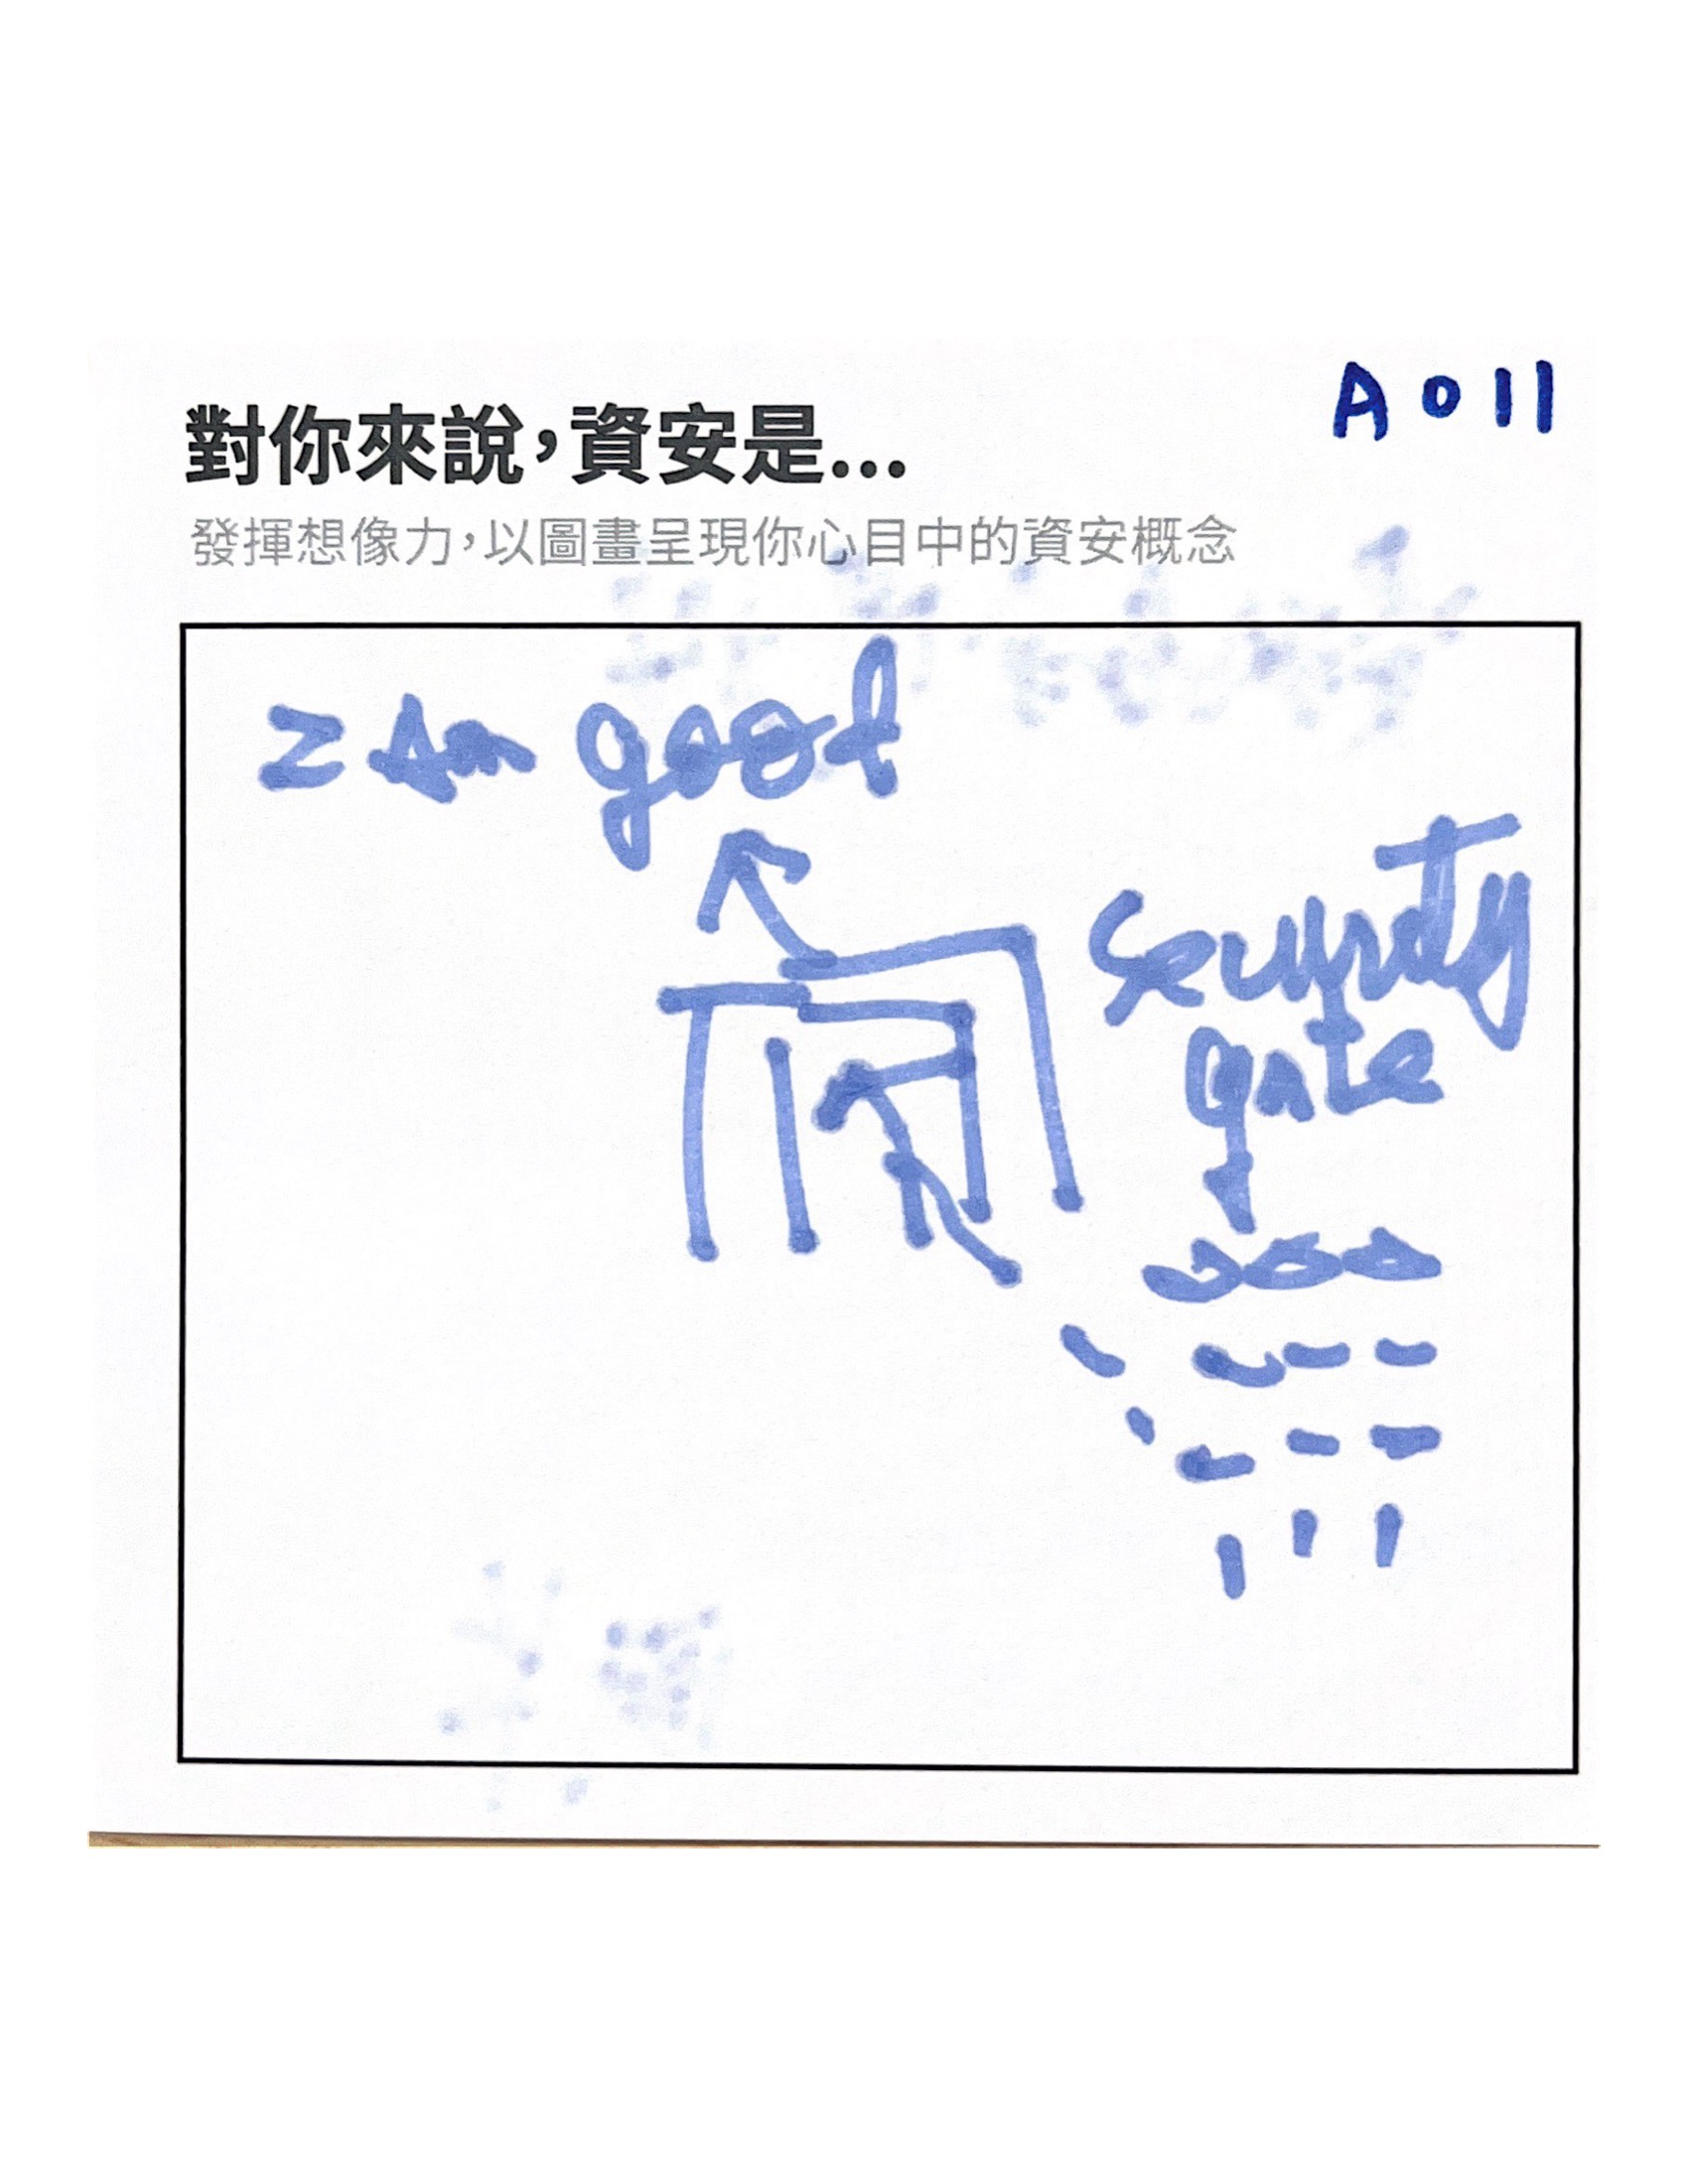 A011
對你來說，資安是...
發揮想像力，以圖畫呈現你心目中的資安概念
I Am good
security
gate